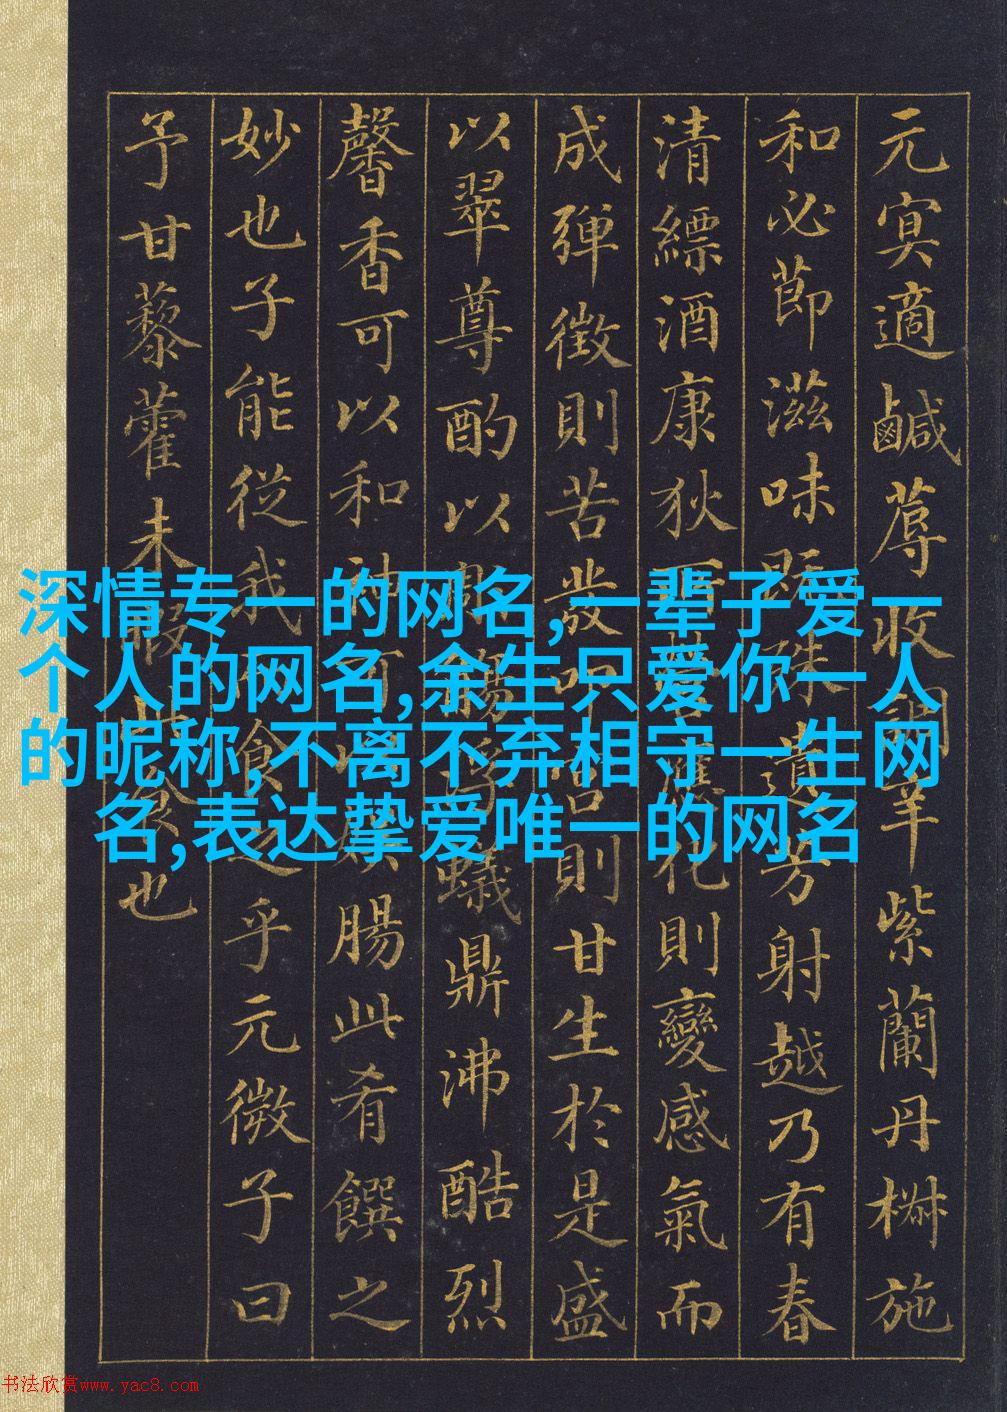 元冥適鹹蓐收調辛紫蘭丹椒施
和必節滋味既殊遺芳射越乃有春
清縹酒康狄所營應化則變感氣而
成彈徵則苦發叩宮則甘生於是盛
以翠尊酌以彫觴浮蟻鼎沸酷烈
馨香可以和神可以娛腸此肴饌之
妙也子能從我而食之乎元微子曰
予甘藜藿未暇此食也
深情专一的网名,一辈子爱一
个人的网名,余生只爱你一人
的昵称,不离不弃相守一生网
名,表达挚爱唯一的网名
书法欣赏www.yac8.com